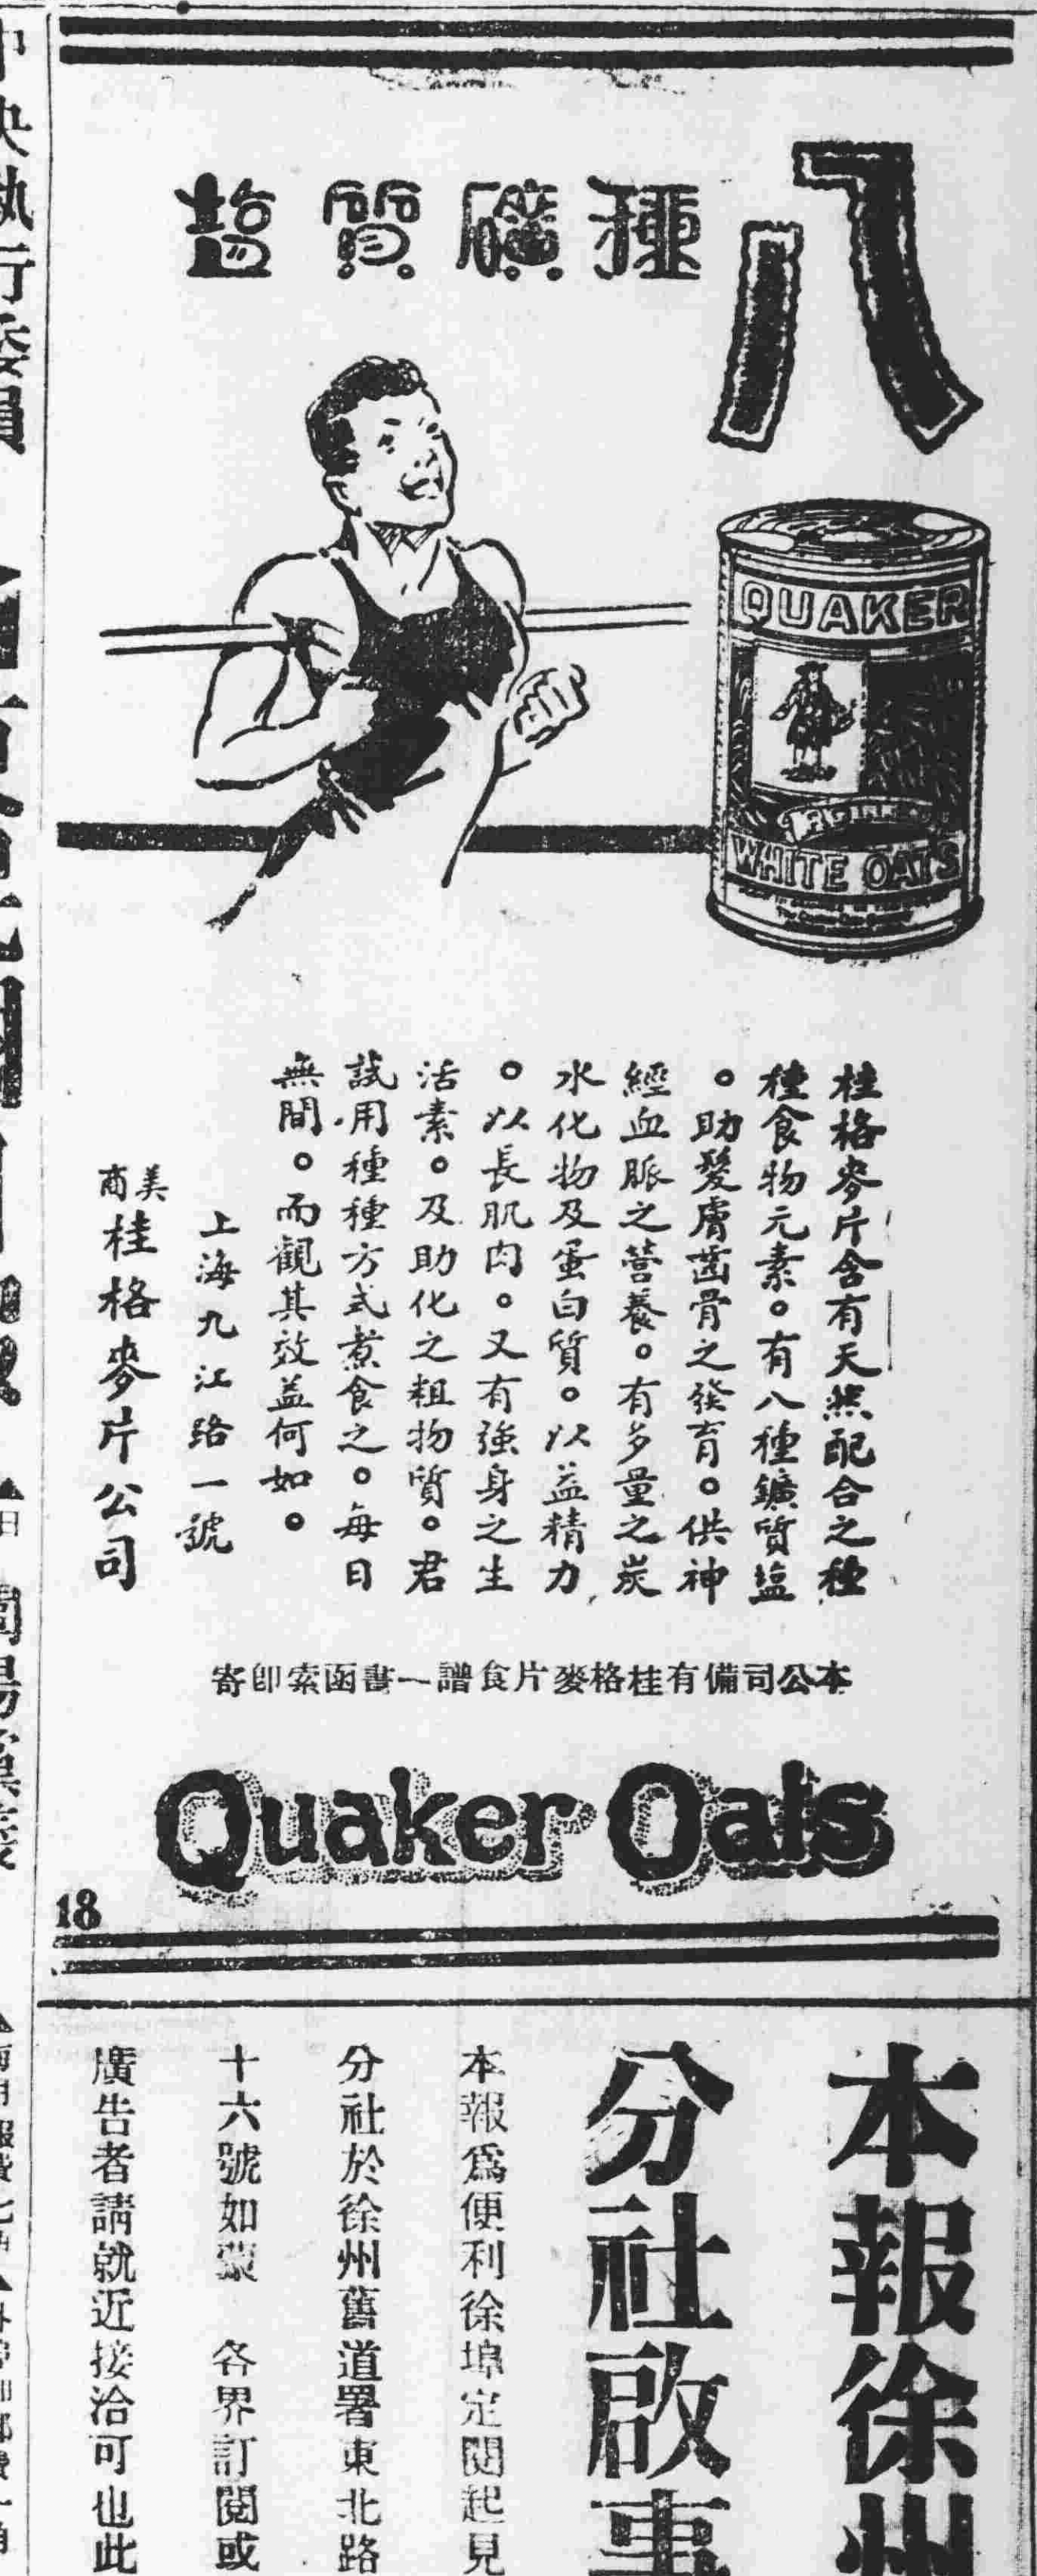 八種礦質鹽
QUAKER
WHITE OATS
桂格麥片含有天然配合之種
種食物元素。有八種鑛質塩
。助髮膚齒骨之發育。供神
經血脈之營養。有多量之炭
水化物及蛋白質。以益精力
。以長肌肉。又有強身之生
活素。及助化之粗物質。君
試用種種方式煮食之。每日
無間。而觀其效益何如。
上海九江路一號
美商桂格麥片公司
本公司備有桂格麥片食譜一書函索卽寄
Quaker Oats
18
本報徐州
分社啟事
本報爲便利徐埠定閱起見
分社於徐州舊道署東北路
十六號如蒙 各界訂閱或
廣告者請就近接洽可也此
中央執行委員